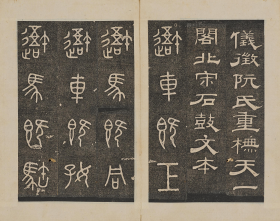 儀徵阮氏重橅天一
閣北宋石鼓文本
車既工
馬既同
車既好
馬既